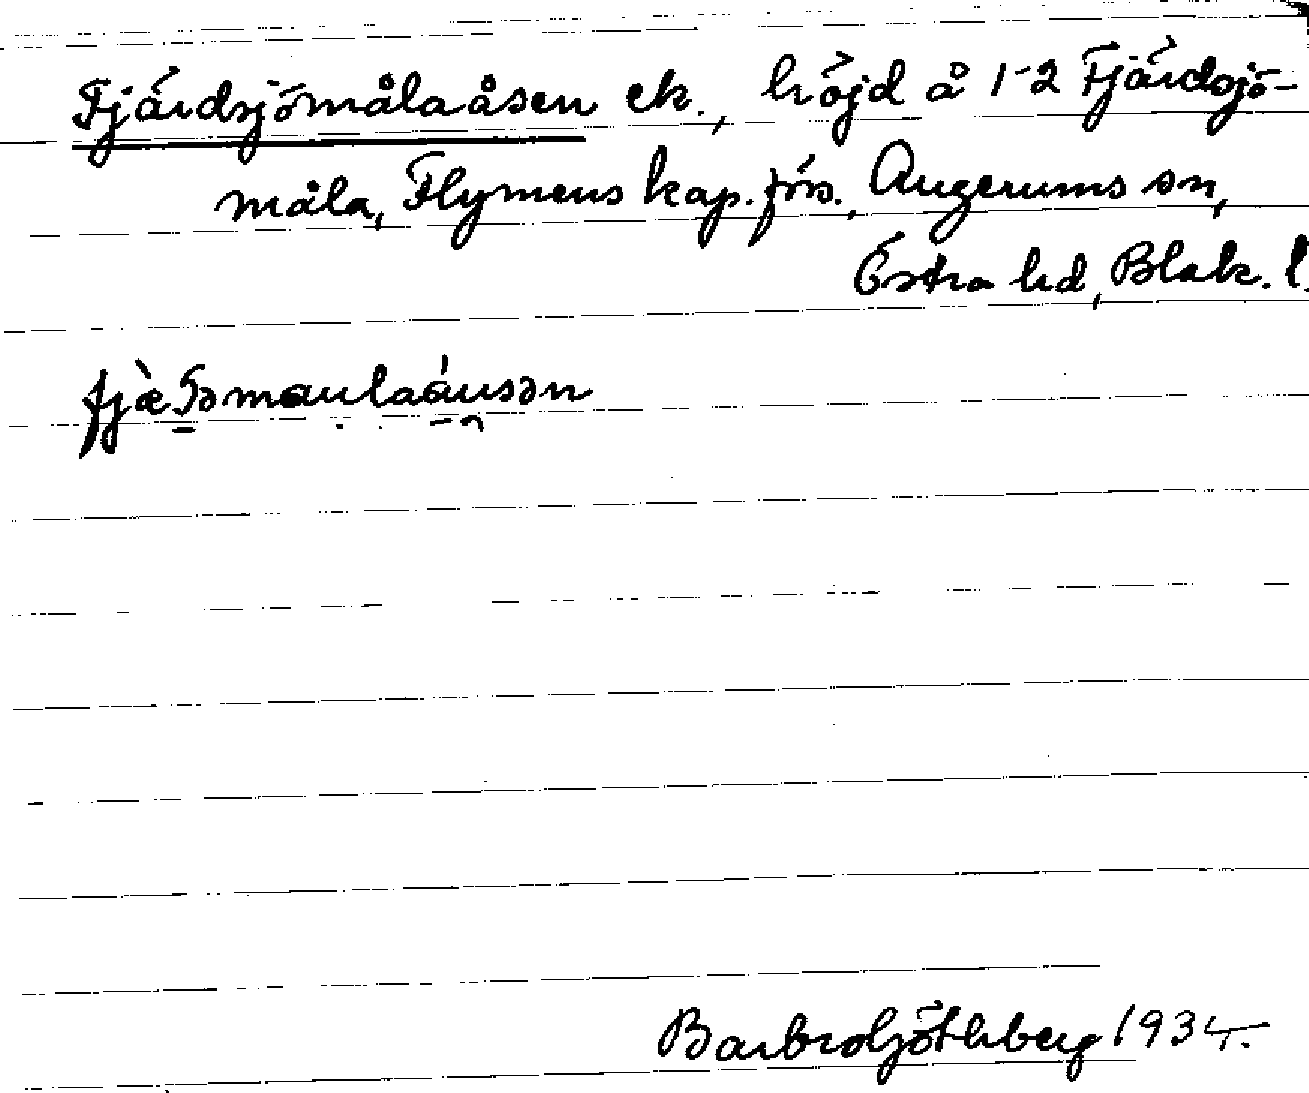 Fjärdsjömålaåsen ek., höjd å 1-2 Fjärdsjö-
måla, Flymens kap. förs., Augerums sn,
Östra hd, Blek. l.
Barbro Göthberg 1934.